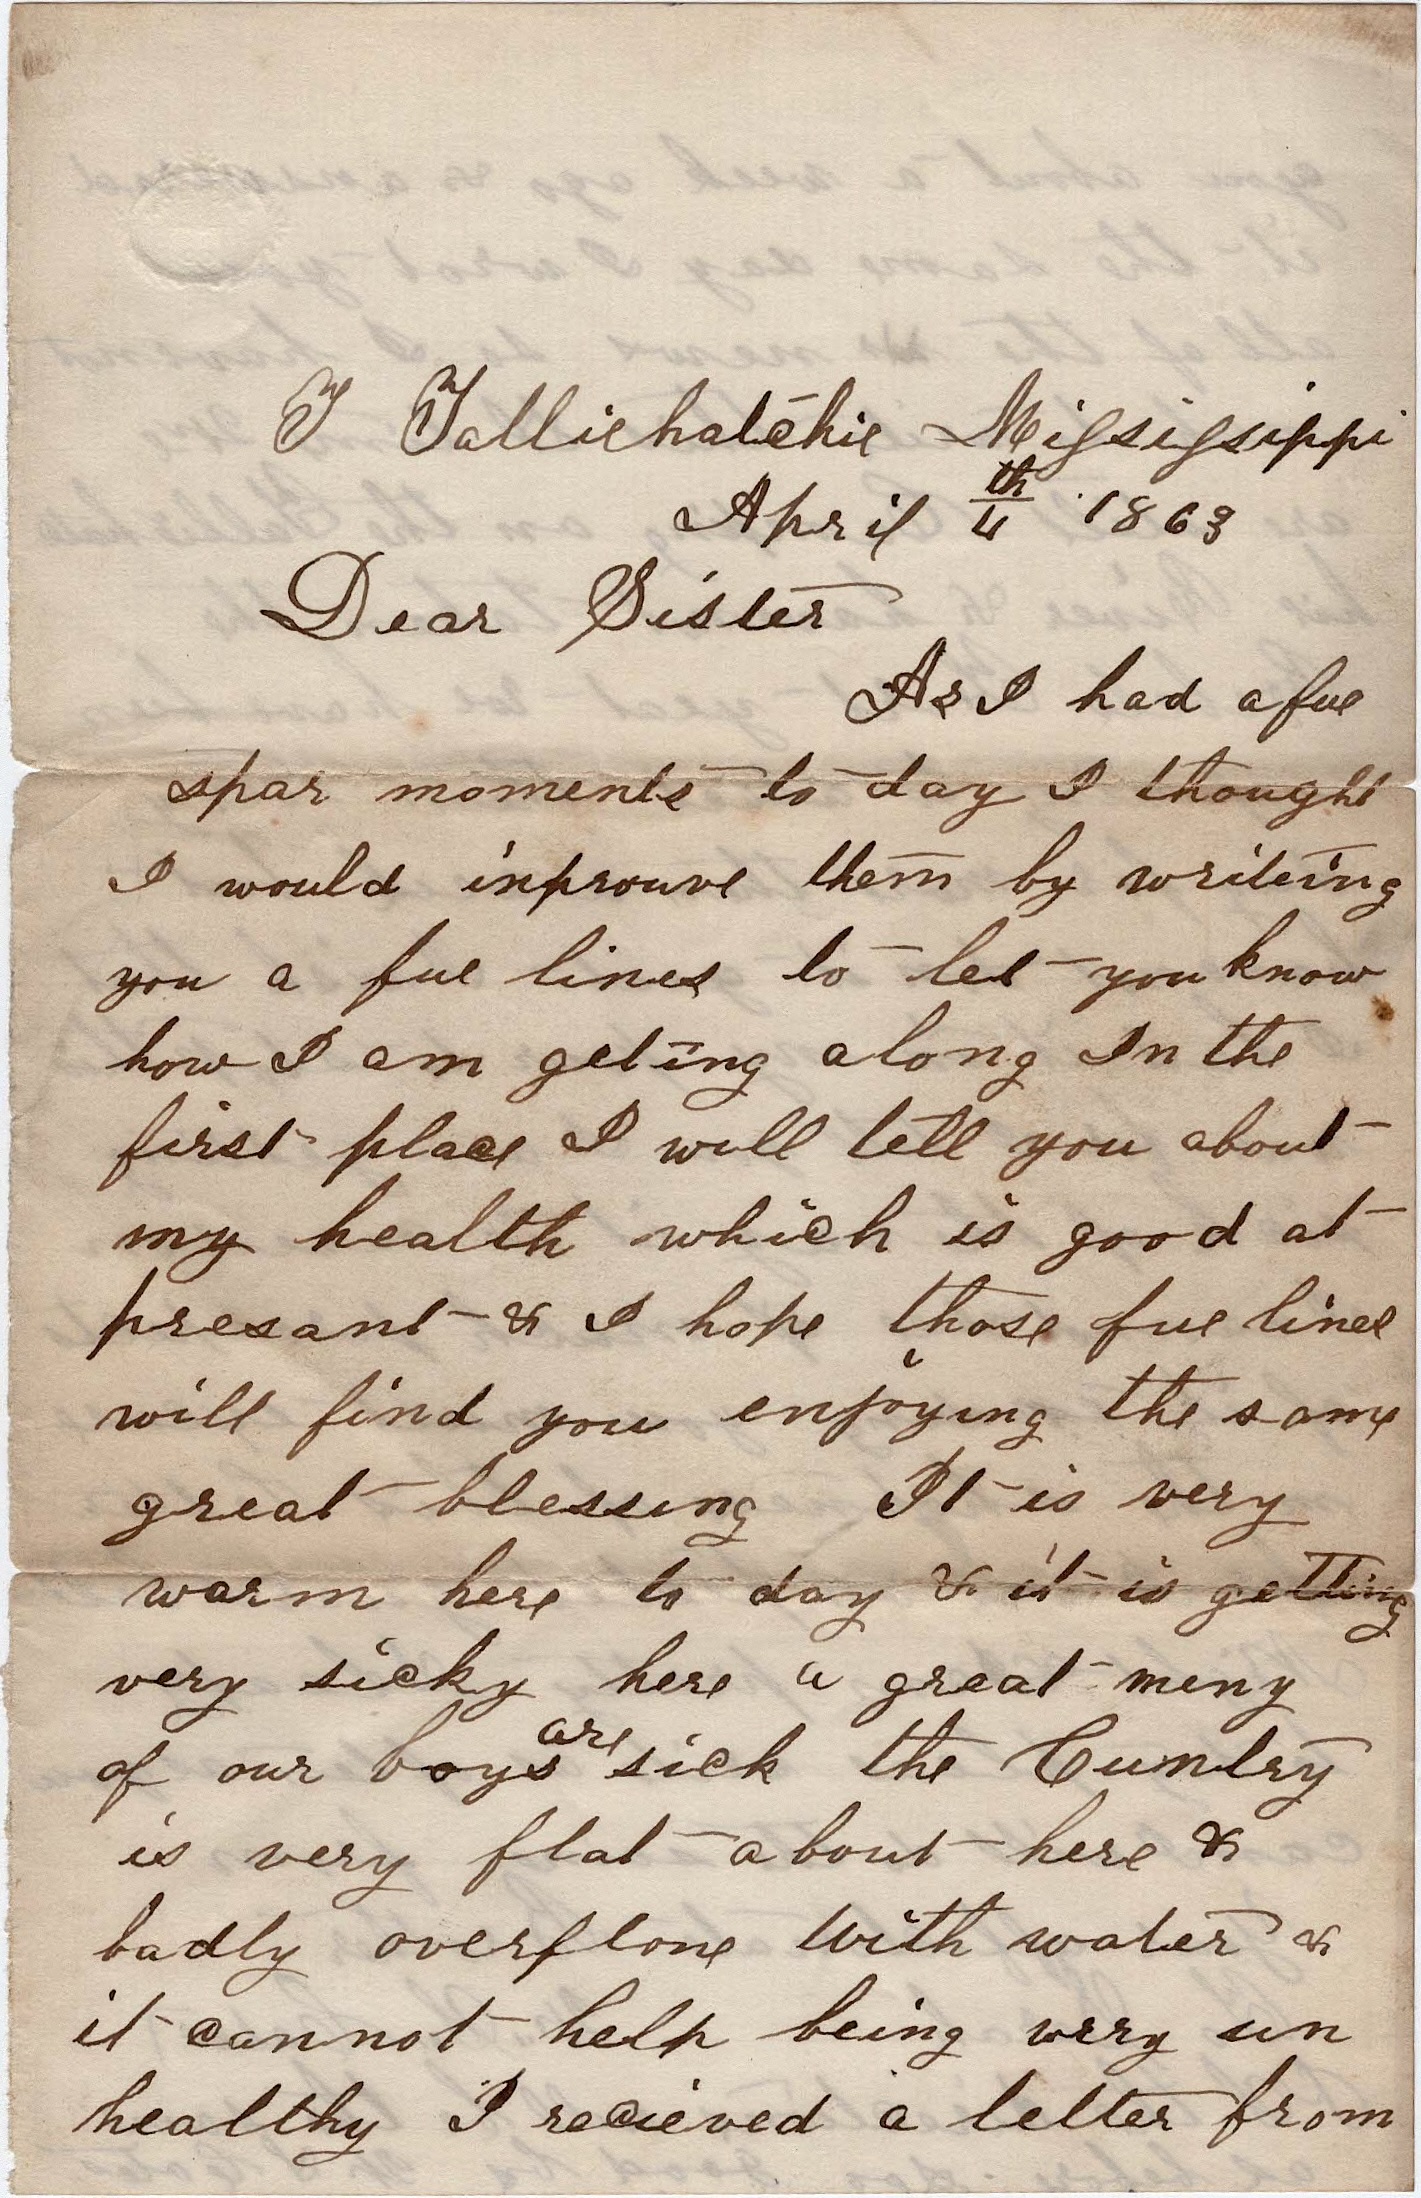 T Talliehatchie Mississippi
April 4th 1863
Dear Sister
As I had a fue
spar moments to day I thought
I would inprouve them by writeing
you a fue lines to let you know
how I am geting along In the
first place I will tell you about
my health which is good at
presant & I hope those fue lines
will find you enjoying the same
great blessing It is very
warm here to day & it is getting
very sicky here a great meny
of our boys are sick the Cuntry
is very flat about here &
badly overflone with water &
it cannot help being very un
healthy I recieved a letter from